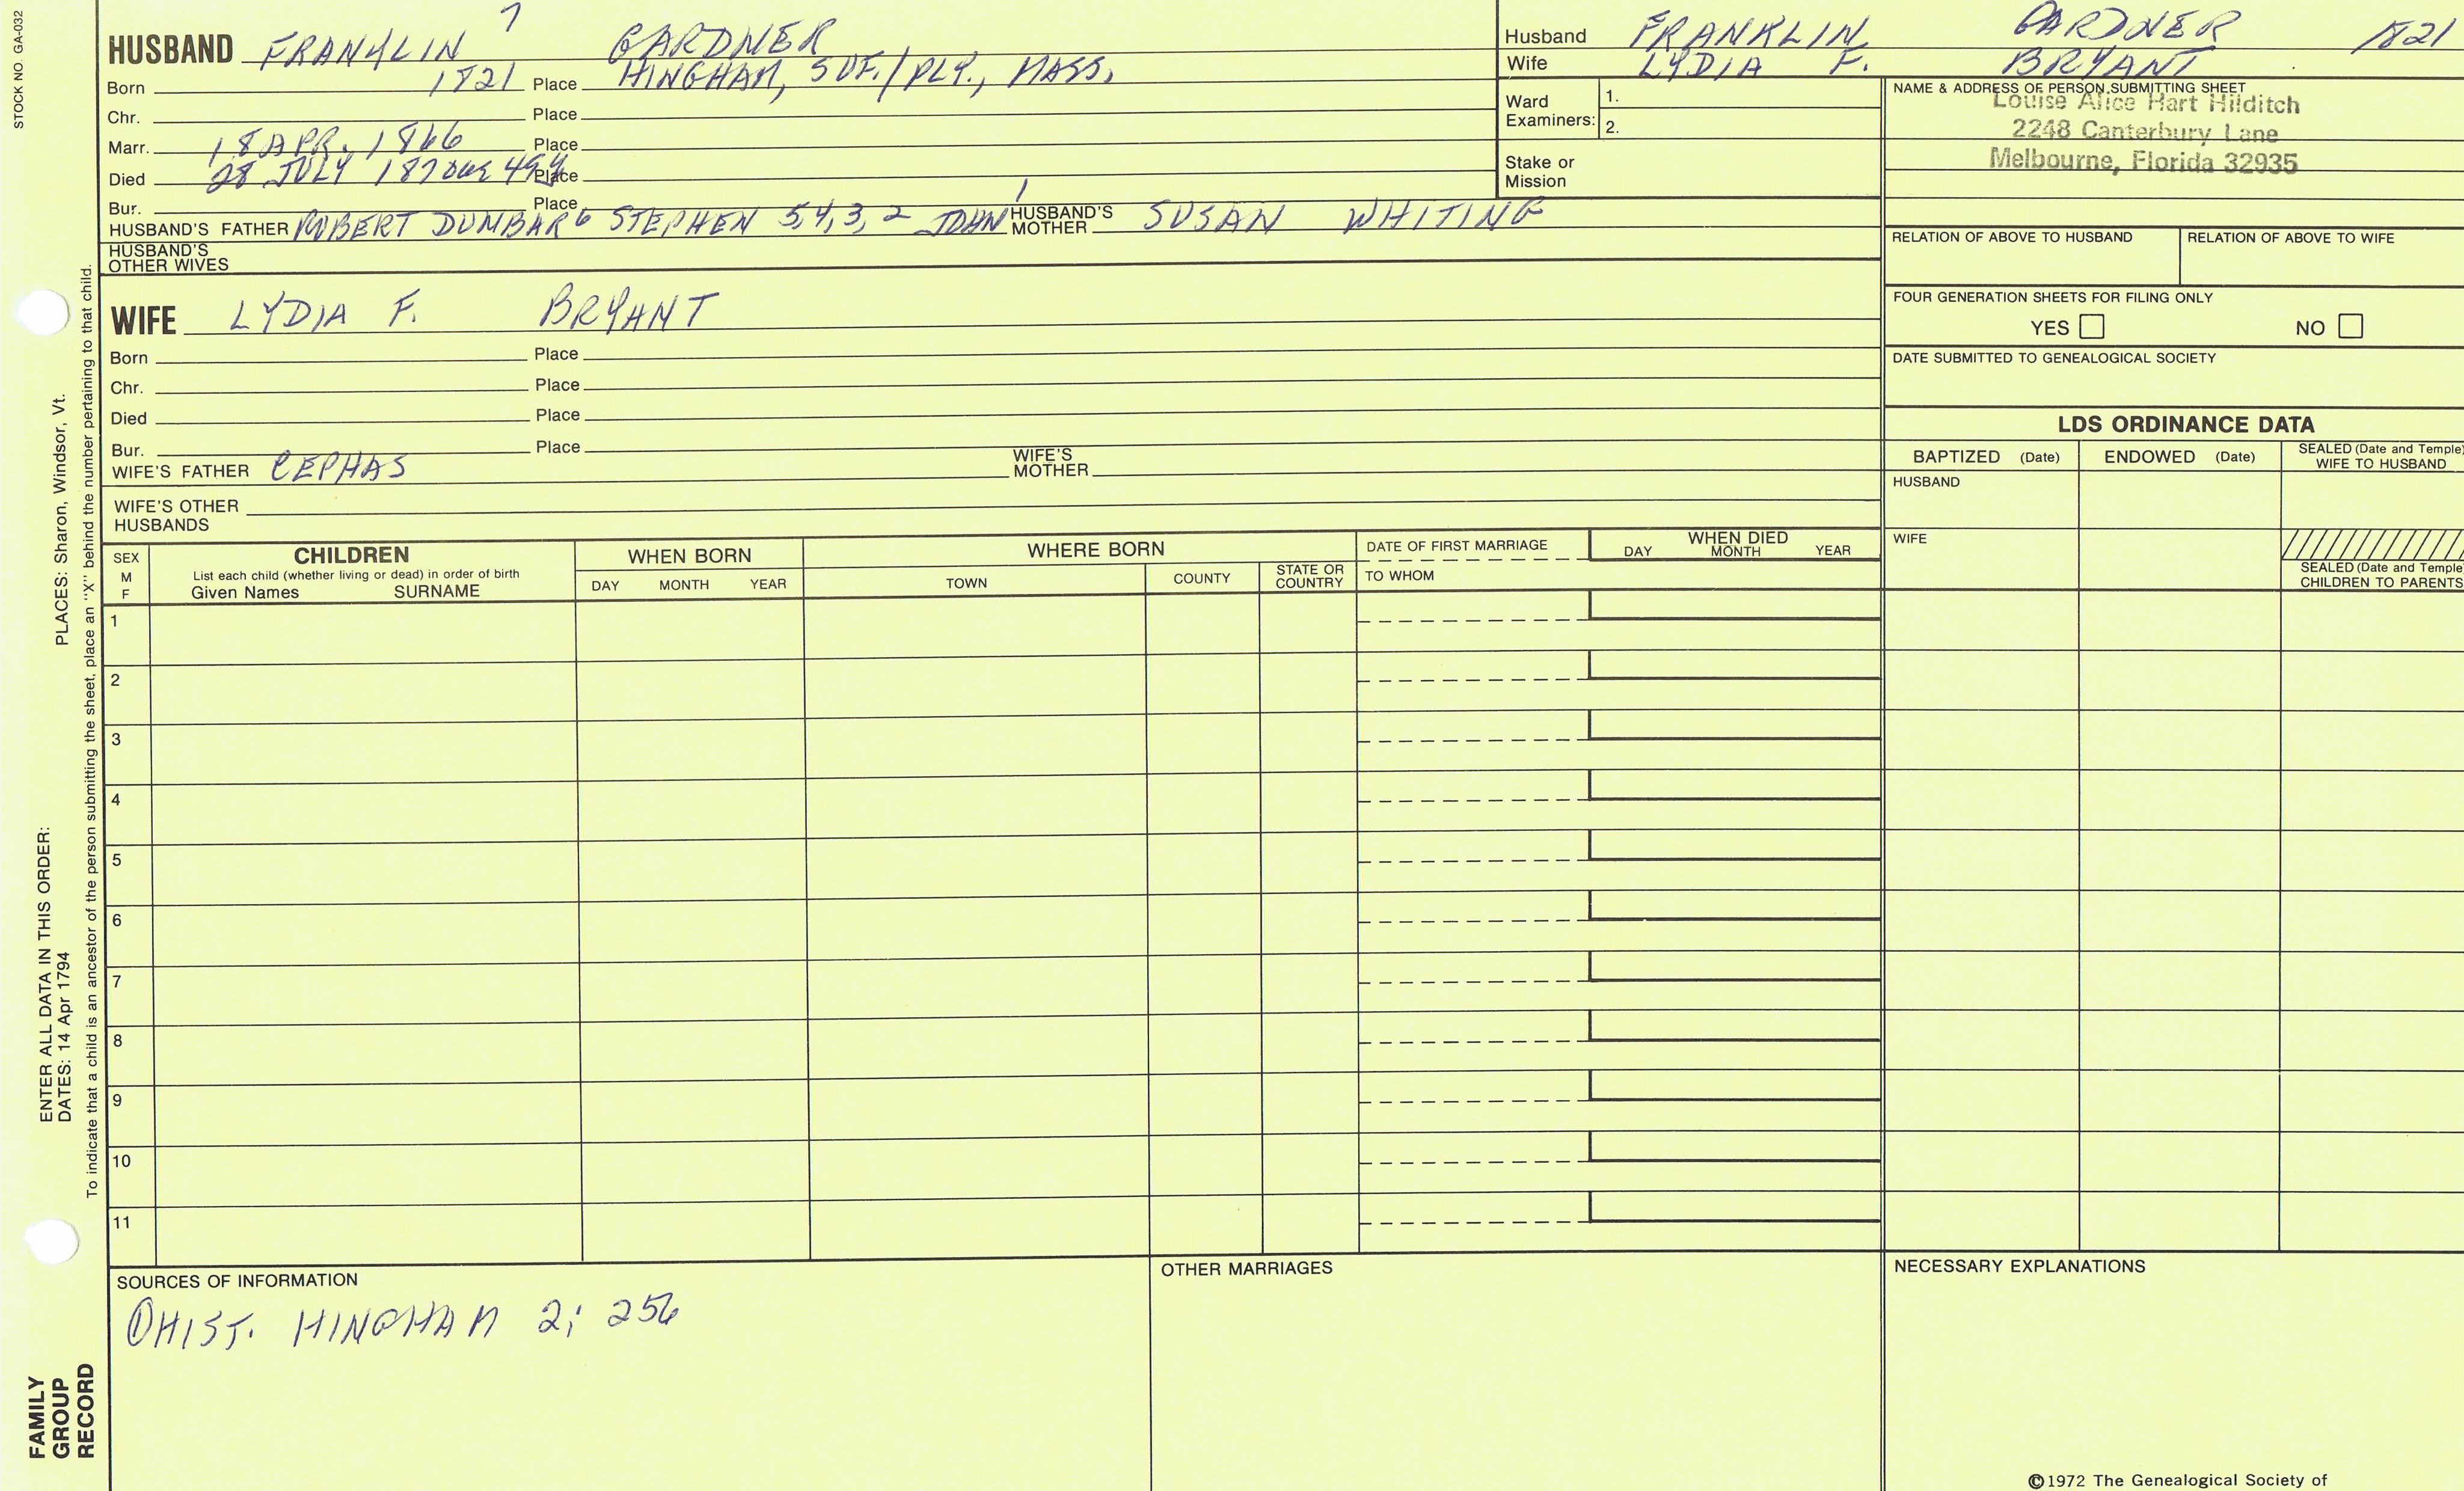 STOCK NO. GA-032
7
HUSBAND FRANKLIN GARDNER
Born 1821 Place HINGHAM, SUF./PLY., MASS.
Chr. Place
Marr. 18 APR. 1866 Place
Died 28 JULY 1870 49y Place
Bur. Place
HUSBAND'S FATHER ROBERT DUNBAR 6 STEPHEN 5,4,3,2 JOHN 1 HUSBAND'S MOTHER SUSAN WHITING
HUSBAND'S OTHER WIVES
WIFE LYDIA F. BRYANT
Born Place
Chr. Place
Died Place
Bur. Place
WIFE'S FATHER CEPHAS WIFE'S MOTHER
WIFE'S OTHER HUSBANDS
Husband FRANKLIN GARDNER 1821
Wife LYDIA F. BRYANT
Ward Examiners: 1.
2.
Stake or Mission
NAME & ADDRESS OF PERSON SUBMITTING SHEET
Louise Alice Hart Hilditch
2248 Canterbury Lane
Melbourne, Florida 32935
RELATION OF ABOVE TO HUSBAND RELATION OF ABOVE TO WIFE
FOUR GENERATION SHEETS FOR FILING ONLY
YES NO
DATE SUBMITTED TO GENEALOGICAL SOCIETY
LDS ORDINANCE DATA
BAPTIZED (Date) ENDOWED (Date) SEALED (Date and Temple) WIFE TO HUSBAND
HUSBAND
WIFE
SEALED (Date and Temple) CHILDREN TO PARENTS
SEX M F
CHILDREN
List each child (whether living or dead) in order of birth
Given Names SURNAME
WHEN BORN
DAY MONTH YEAR
WHERE BORN
TOWN COUNTY STATE OR COUNTRY
DATE OF FIRST MARRIAGE
TO WHOM
WHEN DIED
DAY MONTH YEAR
1
2
3
4
5
6
7
8
9
10
11
SOURCES OF INFORMATION
① HIST. HINGHAM 2; 256
OTHER MARRIAGES
NECESSARY EXPLANATIONS
©1972 The Genealogical Society of
PLACES: Sharon, Windsor, Vt.
ENTER ALL DATA IN THIS ORDER:
DATES: 14 Apr 1794
To indicate that a child is an ancestor of the person submitting the sheet, place an "X" behind the number pertaining to that child.
FAMILY GROUP RECORD